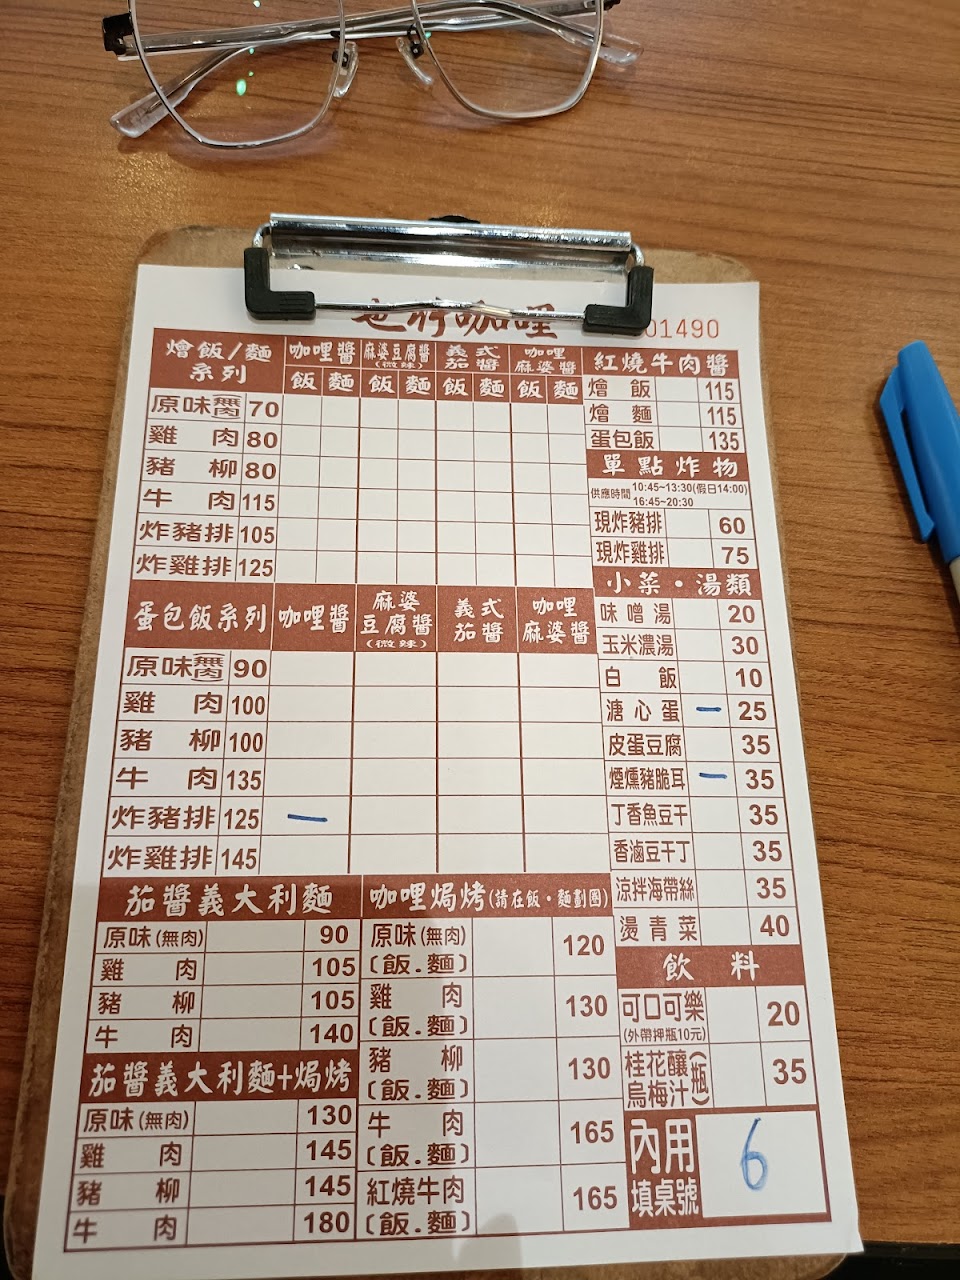 咖哩
01490
燴飯/麵
系列
咖哩醬 麻婆豆腐醬(微辣) 義式茄醬 咖哩麻婆醬
飯 麵 飯 麵 飯 麵 飯 麵
原味(無肉) 70
雞肉 80
豬柳 80
牛肉 115
炸豬排 105
炸雞排 125
蛋包飯系列 咖哩醬 麻婆豆腐醬(微辣) 義式茄醬 咖哩麻婆醬
原味(無肉) 90
雞肉 100
豬柳 100
牛肉 135
炸豬排 125 一
炸雞排 145
茄醬義大利麵
原味(無肉) 90
雞肉 105
豬柳 105
牛肉 140
茄醬義大利麵+焗烤
原味(無肉) 130
雞肉 145
豬柳 145
牛肉 180
咖哩焗烤(請在飯・麵劃圈)
原味(無肉)
(飯.麵) 120
雞肉
(飯.麵) 130
豬柳
(飯.麵) 130
牛肉
(飯.麵) 165
紅燒牛肉
(飯.麵) 165
紅燒牛肉醬
燴飯 115
燴麵 115
蛋包飯 135
單點炸物
供應時間 10:45~13:30(假日14:00)
16:45~20:30
現炸豬排 60
現炸雞排 75
小菜・湯類
味噌湯 20
玉米濃湯 30
白飯 10
溏心蛋 一 25
皮蛋豆腐 35
煙燻豬脆耳 一 35
丁香魚豆干 35
香滷豆干丁 35
涼拌海帶絲 35
燙青菜 40
飲料
可口可樂
(外帶押瓶10元) 20
桂花釀
烏梅汁(瓶) 35
內用
填桌號 6